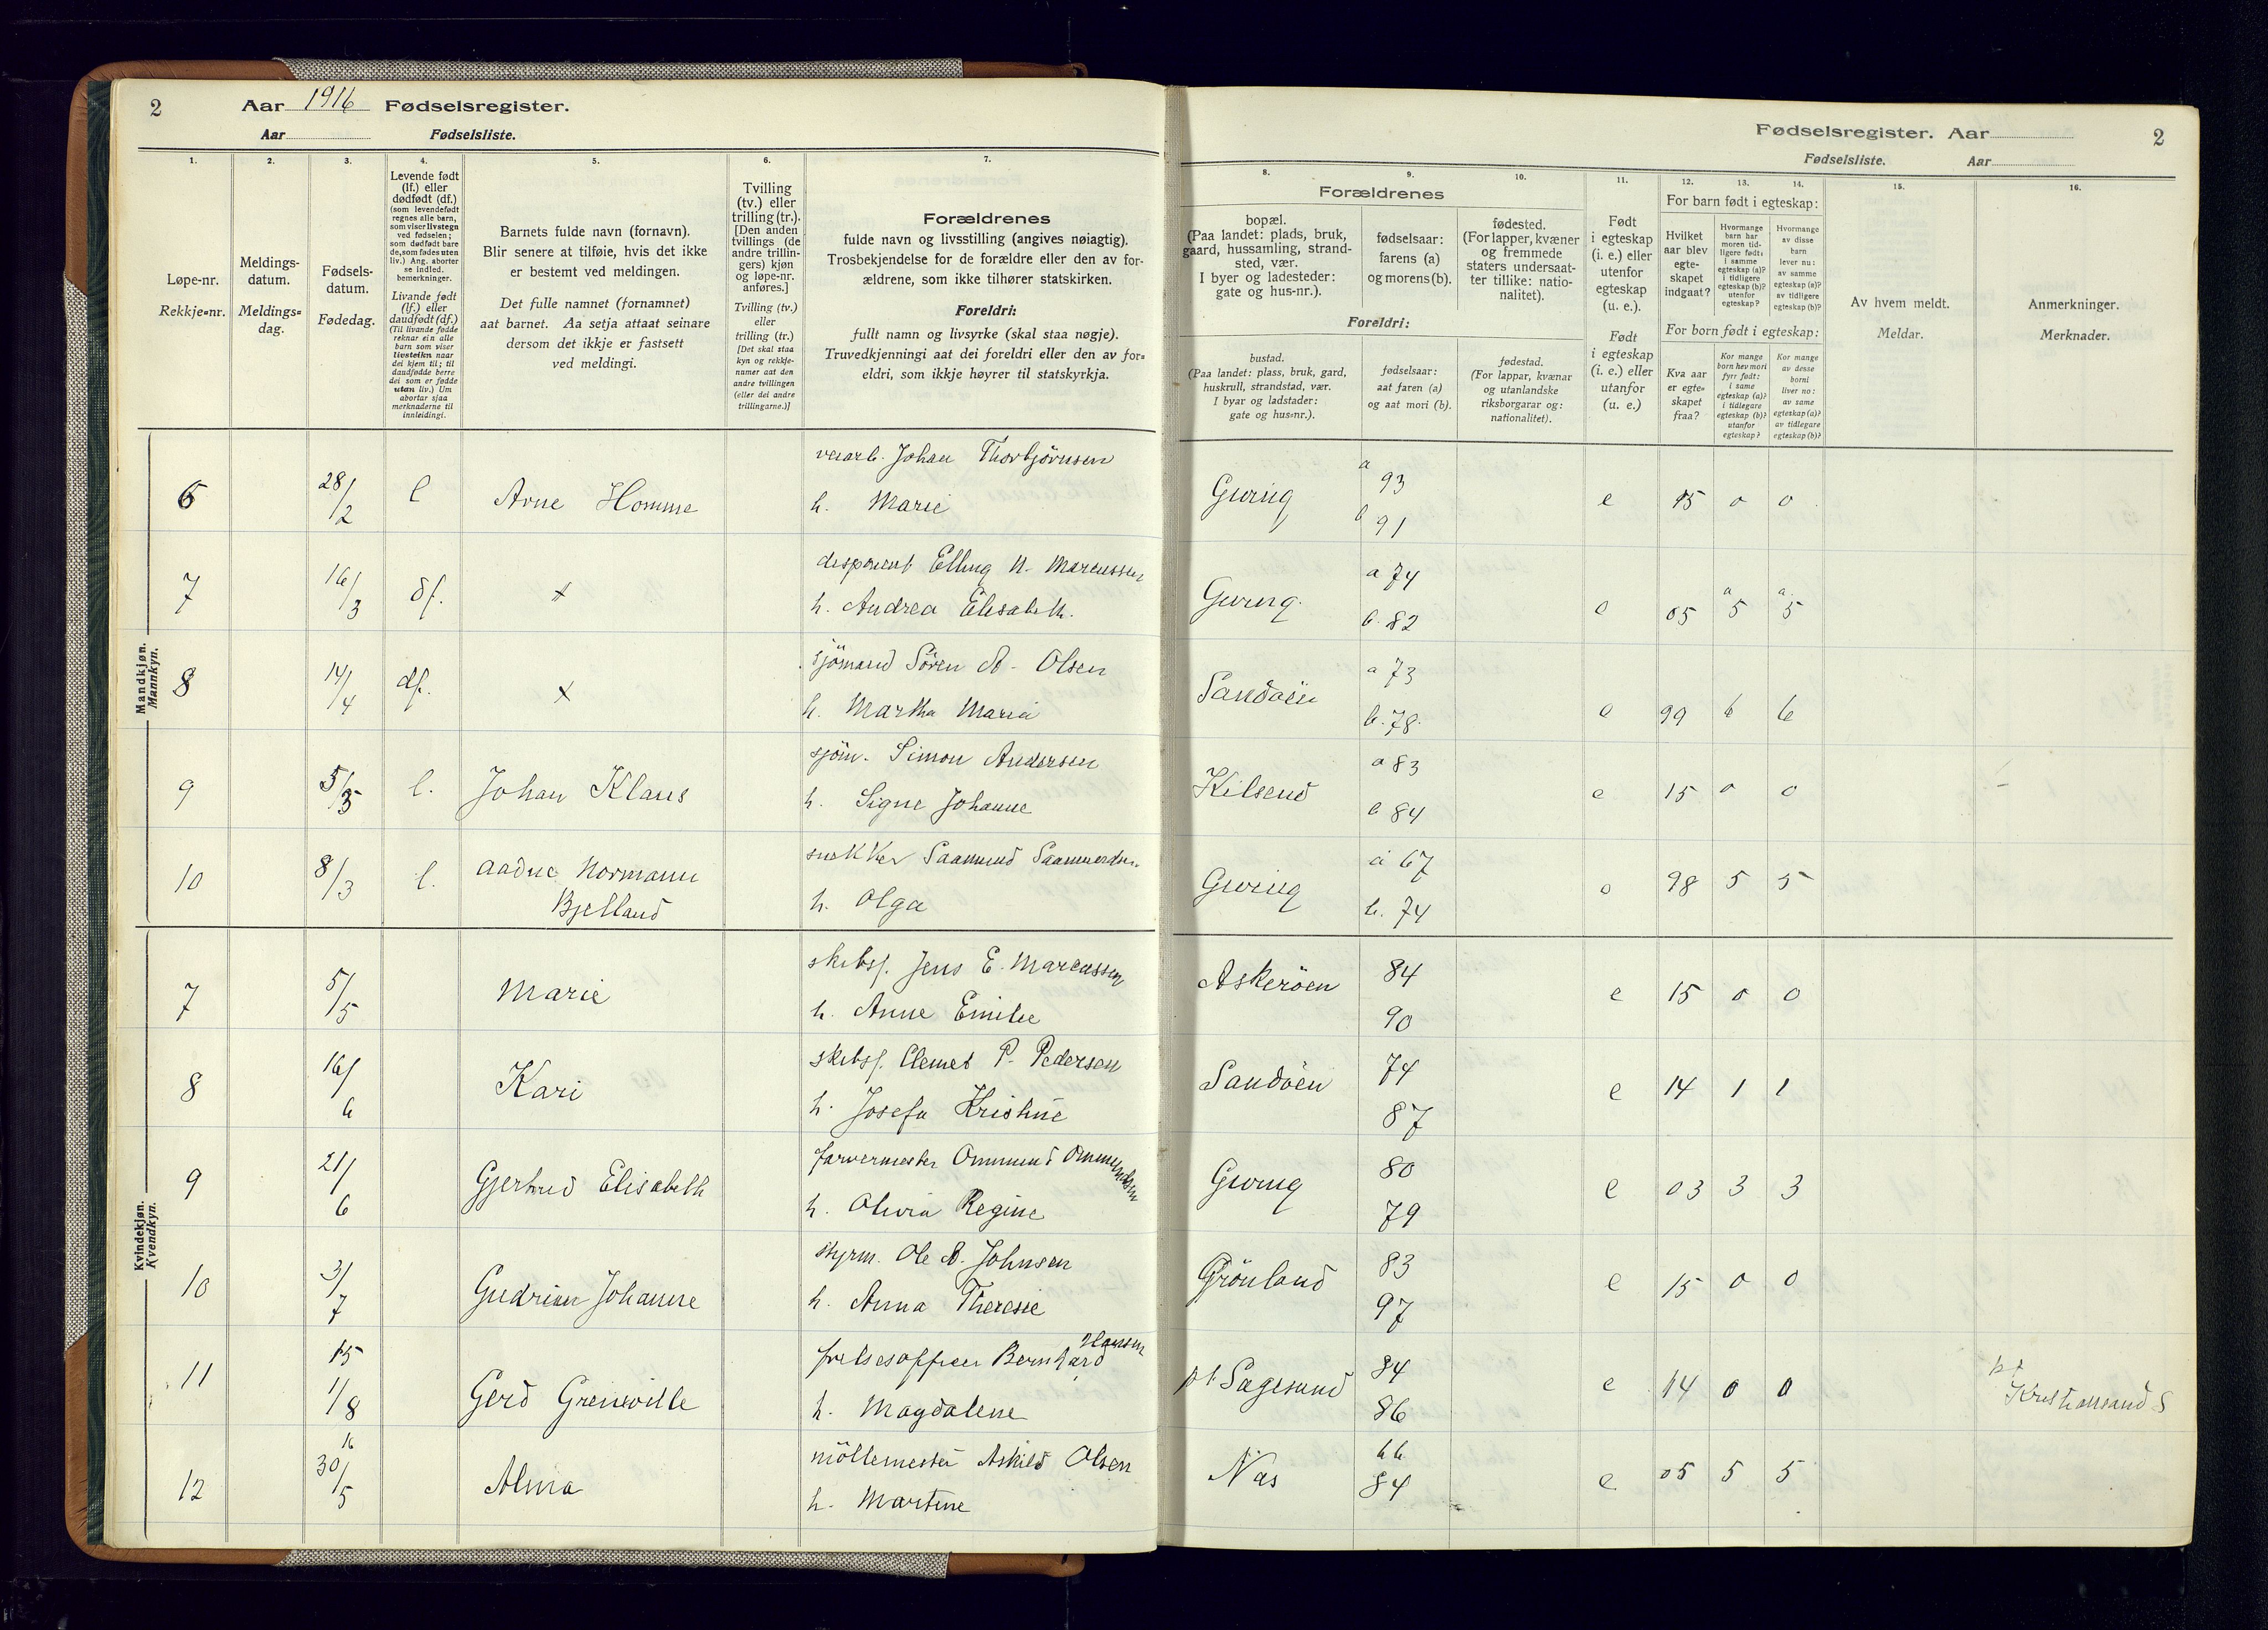 2 Aar 1916 Fødselsregister.
Aar Fødselsliste.
1. 2. 3. 4. 5. 6. 7.
Løpe-nr.
Rekkje=nr.
Meldings-
datum.
Meldings=
dag.
Fødsels-
datum.
Fødedag.
Levende født
(lf.) eller
dødfødt (df.)
(som levendefødt
regnes alle barn,
som viser livstegn
ved fødselen;
som dødfødt bare
de, som fødes uten
liv.) Ang. aborter
se indled.
bemerkninger.
Livande født
(lf.) eller
daudfødt (df.)
(Til livande fødde
reknar ein alle
barn som viser
livsteikn naar
dei kjem til; til
daudfødde berre
dei som er fødde
utan liv.) Um
abortar sjaa
merknaderne til
innleidingi.
Barnets fulde navn (fornavn).
Blir senere at tilføie, hvis det ikke
er bestemt ved meldingen.
Det fulle namnet (fornamnet)
aat barnet. Aa setja attaat seinare
dersom det ikkje er fastsett
ved meldingi.
Tvilling
(tv.) eller
trilling (tr.).
[Den anden
tvillings (de
andre trillin-
gers) kjøn
og løpe-nr.
anføres.]
Tvilling (tv.)
eller
trilling (tr.)
[Det skal staa
kyn og rekkje-
numer aat den
andre tvillingen
(eller dei andre
trillingarne.)]
Forældrenes
fulde navn og livsstilling (angives nøiagtig).
Trosbekjendelse for de forældre eller den av for-
ældrene, som ikke tilhører statskirken.
Foreldri:
fullt namn og livsyrke (skal staa nøgje).
Truvedkjenningi aat dei foreldri eller den av for=
eldri, som ikkje høyrer til statskyrkja.
Mandkjøn.
Mannkyn.
6 28/2 l Arne Homme
Johan Thorbjörnsen
h. Marie
7 16/3 df. x
disponent Elling N. Marcussen
h. Andrea Elisabeth.
8 14/4 df. x
sjömand Sören A. Olsen
h. Martha Maria
9 l. Johan Klaus
sjöm. Simon Andersen
h. Signe Johanne
10 8/3 l. Aadne Normann
Bjelland
snekker Saamund
h. Olga
Kvindekjøn.
Kvendkyn.
7 5/5 Marie
skibsf. Jens E. Marcussen
h. Anne Emilie
8 16/6 Kari
skibsf. Clemet P. Pedersen
h. Josefa Kristine
9 21/6 Gjertrud Elisabeth
farvermester Ommund Ommundsen
h. Olivia Regine
10 3/7 Johanne
styrm. Ole A. Johnsen
h. Anna Theresie
11 15 1/8 Gerd Greneville
frelsesofficer Bernhard Hansen
h. Magdalene
12 16 30/5 Alma
möllemester Askild Olsen
h. Martine
Fødselsregister. Aar 2
Fødselsliste. Aar
8. 9. 10. 11. 12. 13. 14. 15. 16.
Forældrenes
bopæl.
(Paa landet: plads, bruk,
gaard, hussamling, strand-
sted, vær.
I byer og ladesteder:
gate og hus-nr.).
fødselsaar:
farens (a)
og morens (b).
fødested.
(For lapper, kvæner
og fremmede
staters undersaat-
ter tillike: natio-
nalitet).
Foreldri:
bustad.
(Paa landet: plass, bruk, gard,
huskrull, strandstad, vær.
I byar og ladstader:
gate og hus=nr.).
fødselsaar:
aat faren (a)
og aat mori (b).
fødestad.
(For lappar, kvænar
og utanlandske
riksborgarar og:
nationalitet).
Født
i egteskap
(i. e.) eller
utenfor
egteskap
(u. e.).
Født
i egteskap
(i. e.) eller
utanfor
(u. e.)
For barn født i egteskap:
Hvilket
aar blev
egte-
skapet
indgaat?
Hvormange
barn har
moren tid-
ligere født:
i samme
egteskap (a)?
i tidligere
egteskap (b)?
utenfor
egteskap?
Hvormange
av disse
barn
lever nu:
av samme
egteskap (a)?
av tidligere
egteskap (b)?
For born født i egteskap:
Kva aar
er egte=
skapet
fraa?
Kor mange
born hev mori
fyrr født:
i same
egteskap (a)?
i tidlegare
egteskap (b)?
utanfor
egteskap?
Kor mange
av desse
borni
liver no:
av same
egteskap (a)?
av tidlegare
egteskap (b)?
Av hvem meldt.
Meldar.
Anmerkninger.
Merknader.
a 93
b 91
e 15 0 0
a 74
b. 82
e 05 a 5 a 5
Sandöen
a 73
b. 78.
e 99 6 6
Kilsund
a 83
b 84
e 15 0 0
a 67
b. 74
e 98 5 5
Askeröen
84
90
e 15 0 0
Sandöen
74
87
e 14 1 1
80
79
e 03 3 3
Grönland
83
97
e 15 0 0
pt Sagesund
84
86
e 14 0 0
pt
Kristiansand S
Næs
66
84
e 05 5 5